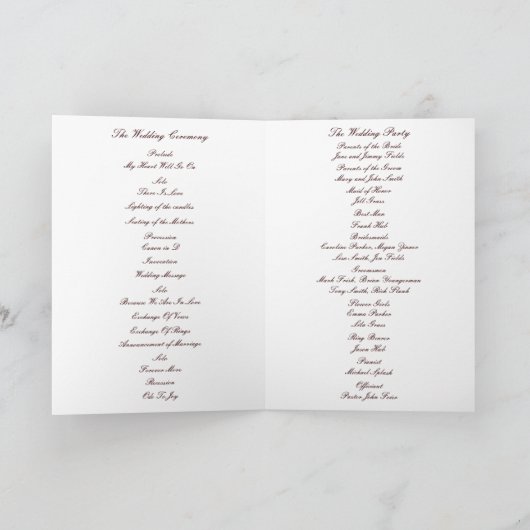 The Wedding Ceremony
Prelude
My Heart Will Go On
Solo
There Is Love
Lighting of the candles
Seating of the Mothers
Procession
Canon in D
Invocation
Wedding Message
Solo
Because We Are In Love
Exchange Of Vows
Exchange Of Rings
Announcement of Marriage
Solo
Forever More
Recession
Ode To Joy
The Wedding Party
Parents of the Bride
Jane and Jimmy Fields
Parents of the Groom
Mary and John Smith
Maid of Honor
Jill Grass
Best Man
Frank Hub
Bridesmaids
Caroline Parker, Megan
Lisa Smith, Jen Fields
Groomsmen
Mark Fresh, Brian Youngerman
Tony Smith, Rick Plank
Flower Girls
Emma Parker
Lila Grass
Ring Bearer
Jason Hub
Pianist
Michael Splash
Officiant
Pastor John